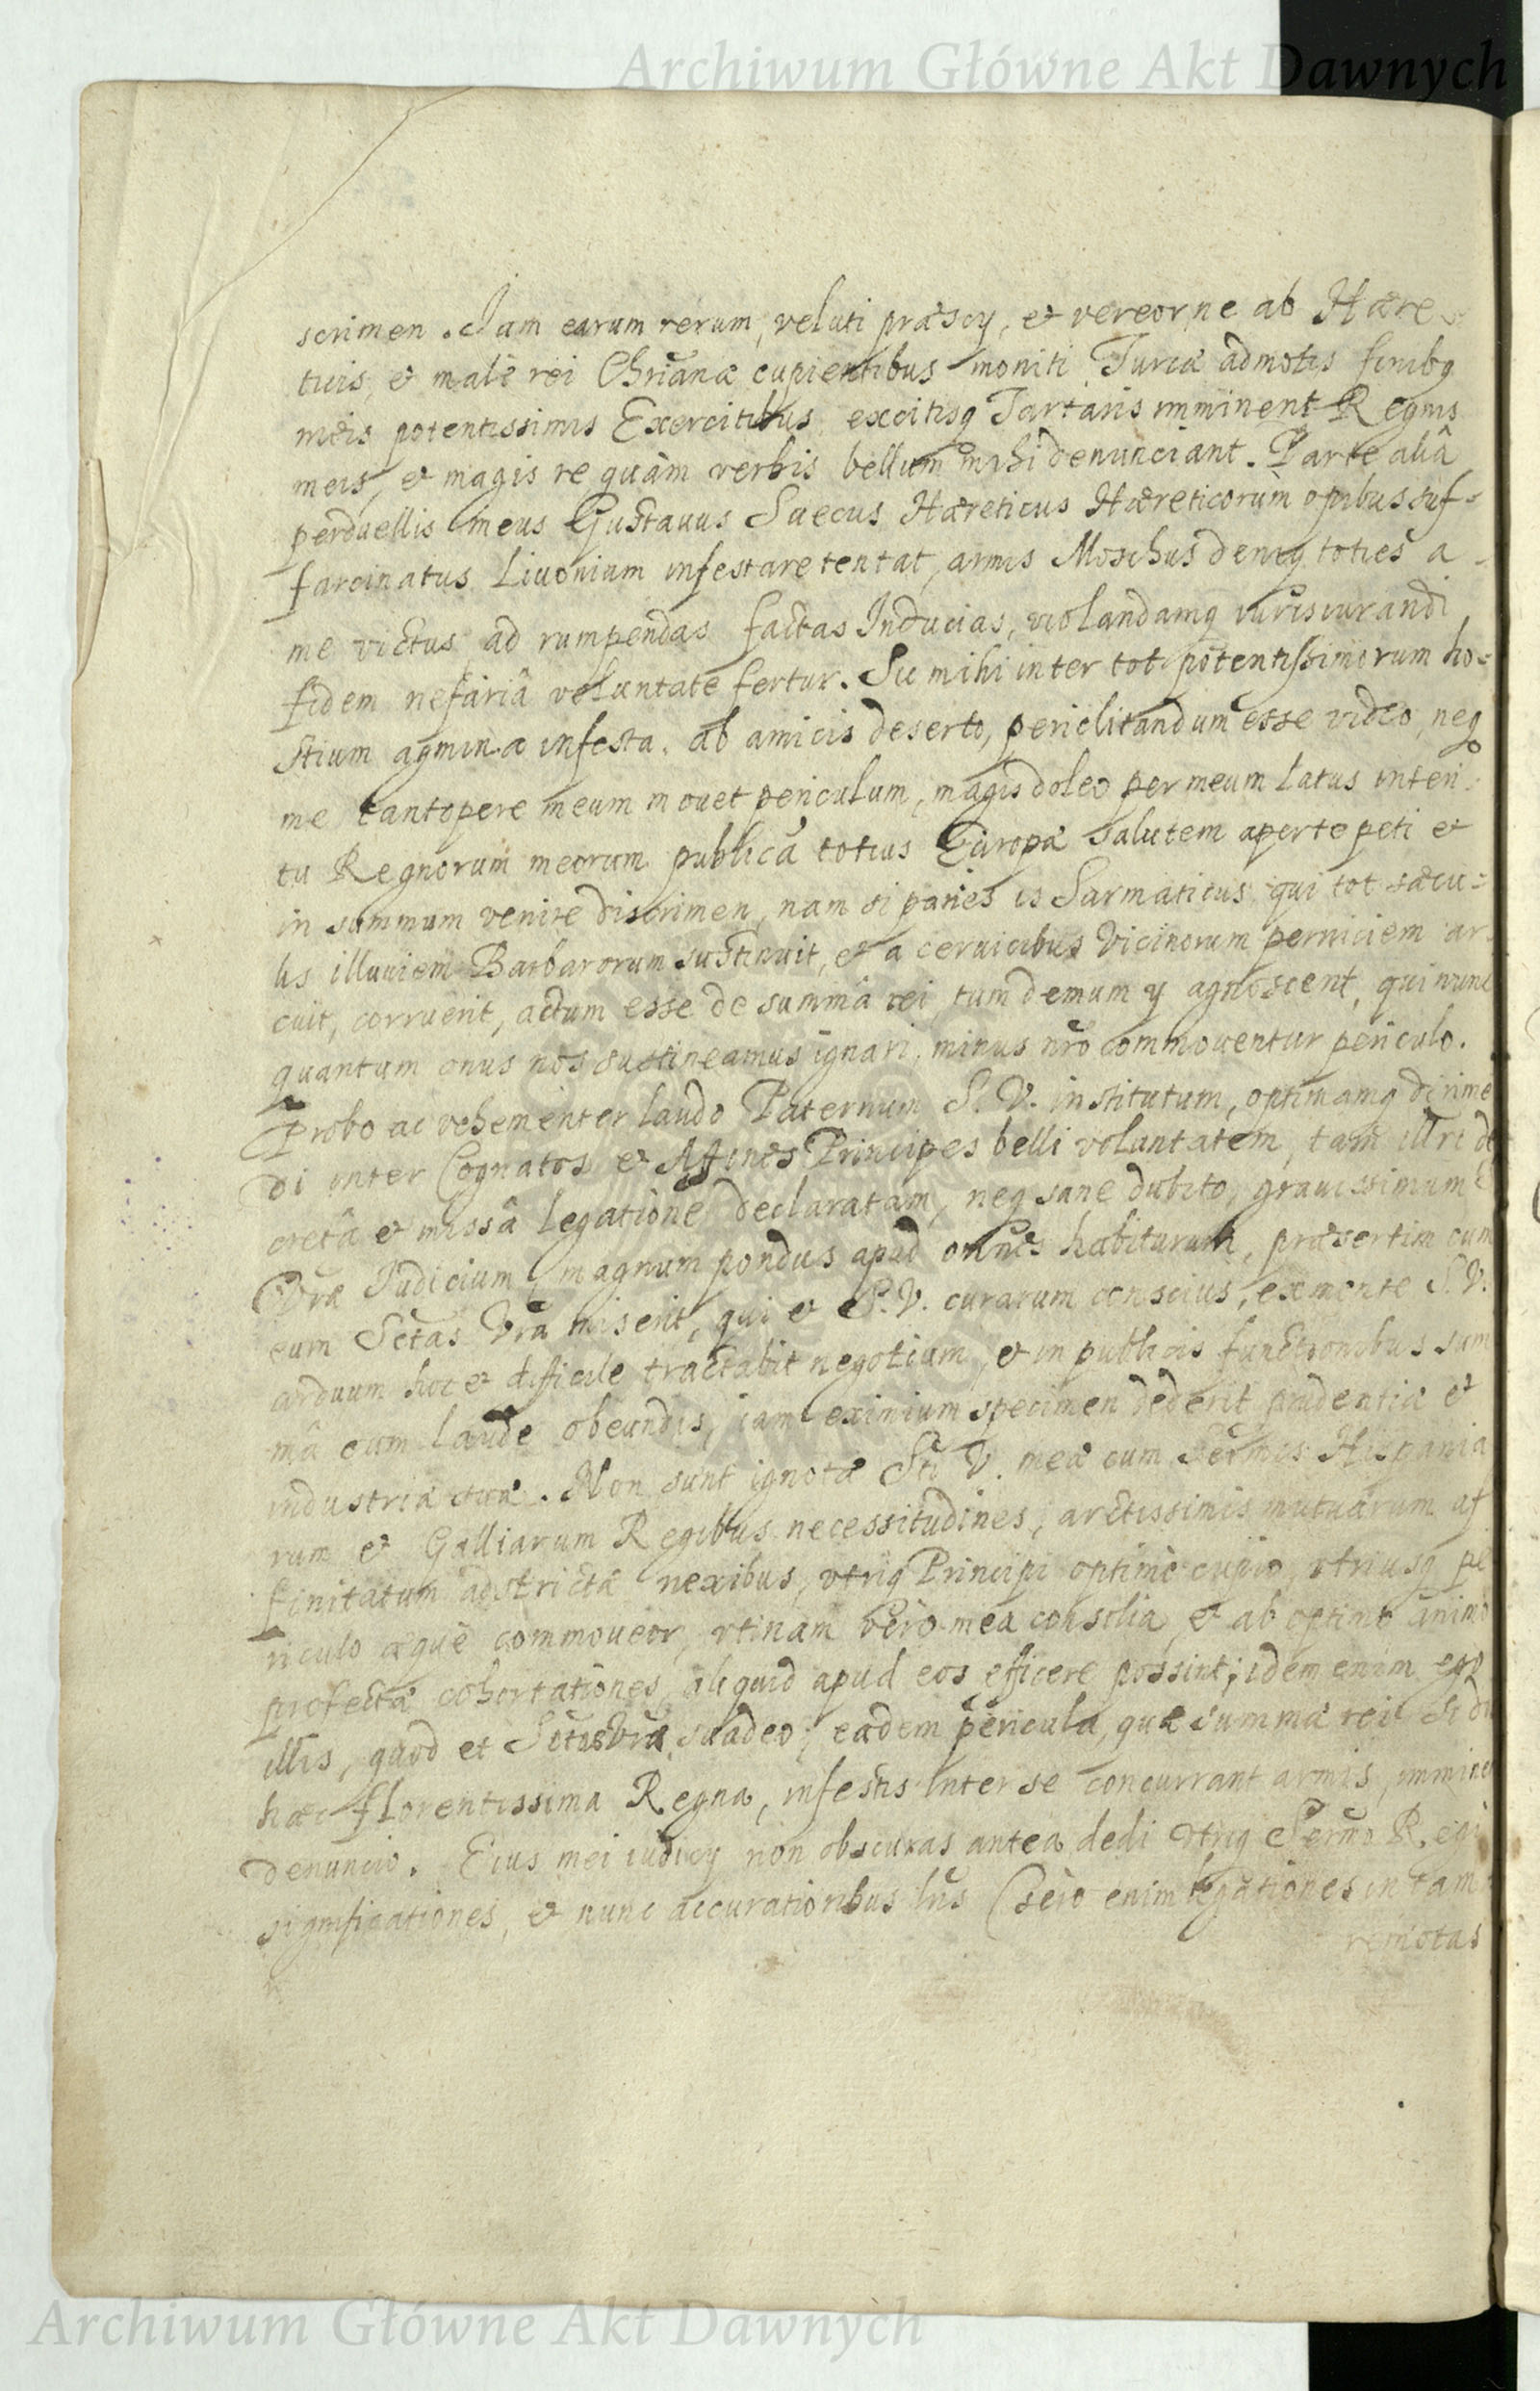 Archiwum Główne Akt Dawnych
scrimen. Iam earum rerum, veluti præscij, et vereor ne ab Hære
ticis, et malè rei Chr̃ianæ cupientibus moniti Turcæ admotis finibq
meis potentissimis Exercitibus, excitisq Tartaris imminent Regnis
meis, et magis re quàm verbis bellum mihi denunciant. Parte aliâ
perduellis meus Gustauus Suecus Hæreticus Hæreticorum opibus suf-
farcinatus Liuoniam infestare tentat, armis Moschus deniq toties a
me victus ad rumpendas factas Inducias, violandamq iurisiurandi
fidem nefariâ voluntate fertur. Sic mihi inter tot potentissimorum ho-
stium agmina infesta, ab amicis deserto, periclitandum esse video, neq
me tantopere meum mouet periculum, magis doleo per meum latus interi-
tu Regnorum meorum publicã totius Europæ salutem aperte peti et
in summum venire discrimen, nam si paries is Sarmaticus qui tot sæcu-
lis illuuiem Barbarorum sustinuit, et a ceruicibus Vicinorum perniciem ar-
cuit, corruerit, actum esse de summa rei tum demum ij agnoscent, qui nunc
quantum onus nos sustineamus ignari, minus nr̃o commouentur periculo.
Probo ac vehementer laudo Paternum S. V. institutum, optimamq dirime
di inter Cognatos et Affines Principes belli voluntatem, tam ill̃ri de
cretâ et missâ legatione declaratam, neq sane dubito, grauissimum
Vr̃æ Iudicium magnum pondus apud omnes habiturum, præsertim cum
eum S̃ctas Vr̃a miserit, qui et S. V. curarum conscius, ex mente S. V.
arduum hoc et difficile tractabit negotium, et in publicis functionibus sum
mâ cum laude obeundis, iam eximium specimen dederit prudentiæ et
industriæ suæ. Non sunt ignotæ S̃ti V. meæ cum Ser̃mis Hispania
rum et Galliarum Regibus necessitudines, arctissimis mutuarum af
finitatum adstrictæ nexibus, vtriq Principi optimè cupio, vtriusq pe
riculo æquè commoueor, vtinam vero mea consilia, et ab optimo animo
profectæ cohortationes, aliquid apud eos efficere possint; idem enim ego
illis, quod et S̃ctas Vr̃a, suadeo; eadem pericula, quæ summæ rei si du
hæc florentissima Regna, infestis inter se concurrant armis, immine
denuncio. Eius mei iudicij non obscuras antea dedi vtriq Ser̃mo Regi
significationes, et nunc accuratioribus l̃ris (sero enim legationes in tam
remotas
Archiwum Główne Akt Dawnych